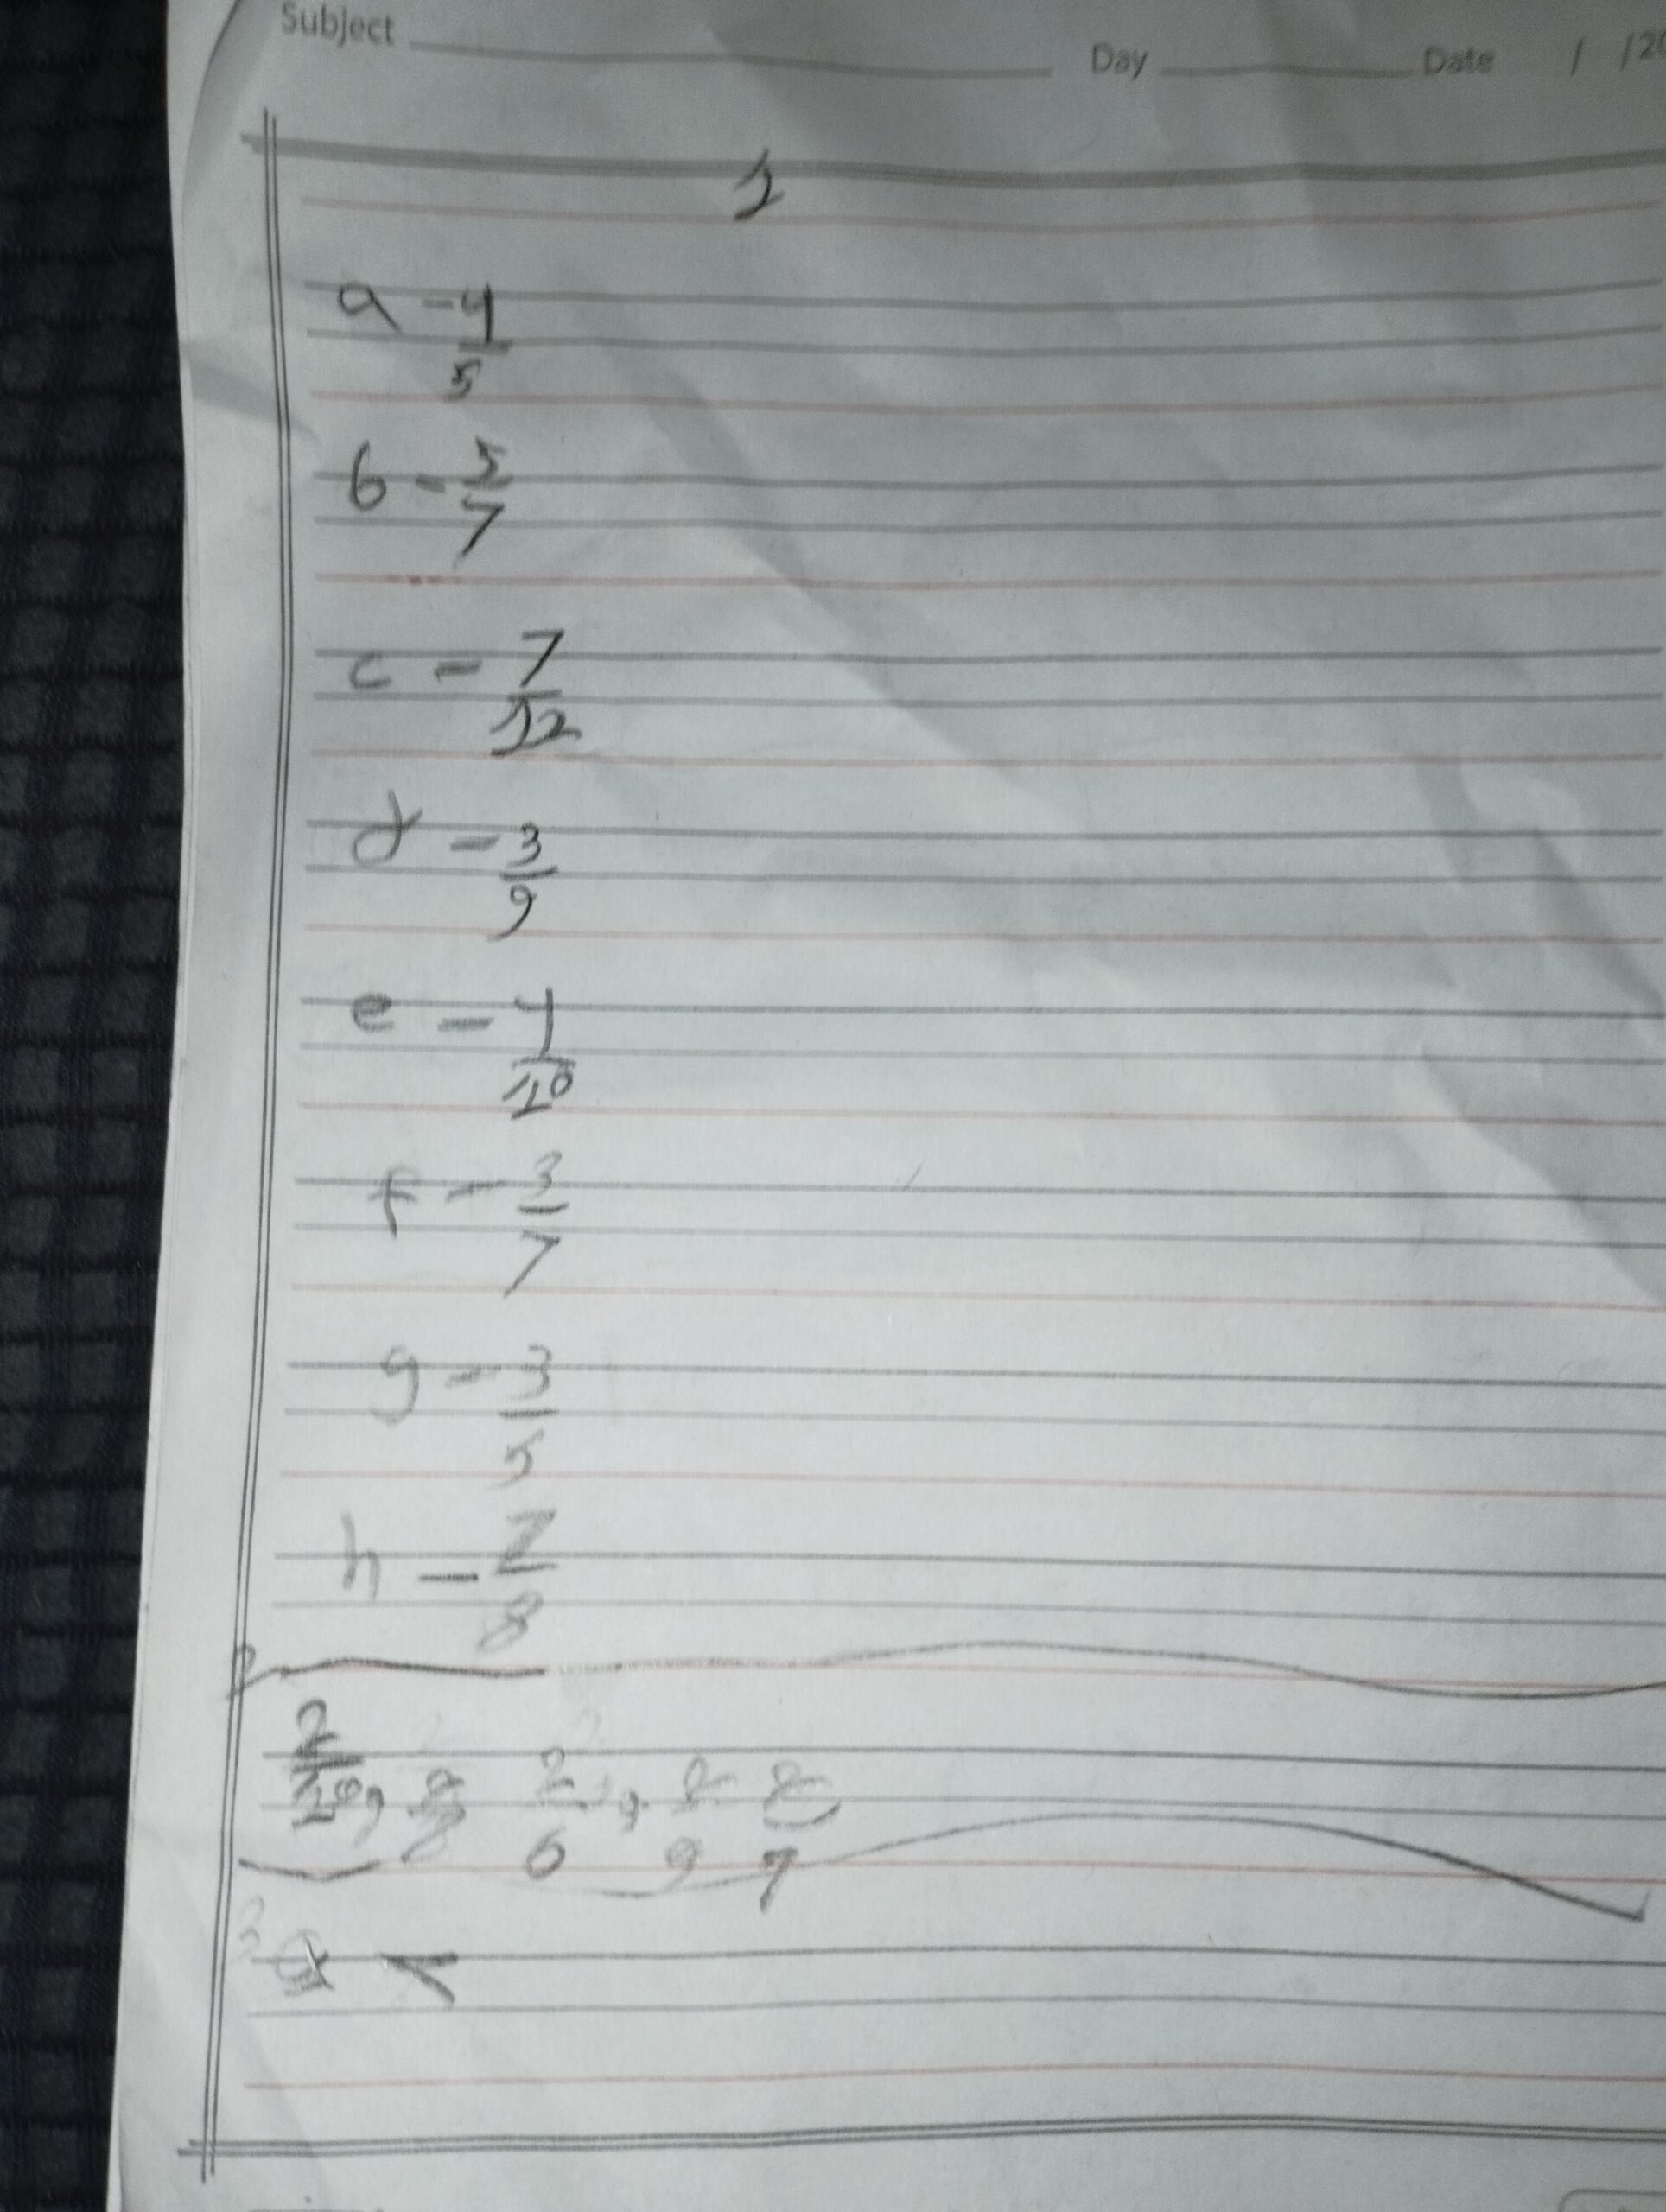 Subject Day Date / /20
1
a - 4/5
b - 5/7
c - 7/12
d - 3/9
e - 4/10
f - 3/7
g - 3/5
h - 7/8
2
2/10, 2/8 2/6, 2/9 2/7
3 a <